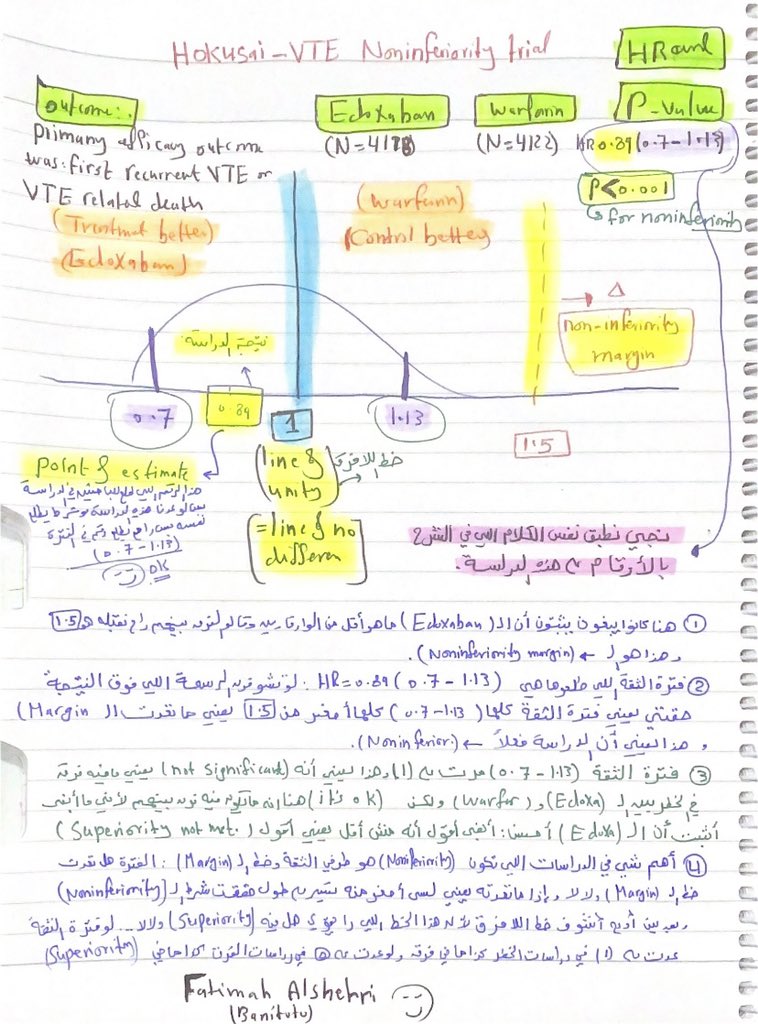 Hokusai-VTE Noninferiority trial
HR and
P-value
outcome:.
Edoxaban
(N=4118)
Warfarin
(N=4122)
HR 0.89 (0.7-1.13)
P<0.001
for noninferiority
primary efficacy outcome
was: first recurrent VTE or
VTE related death
(Treatment better)
(Edoxaban)
(Warfarin)
(Control better)
→ Δ
non-inferiority
margin
نتيجة الدراسة
0.7
0.89
1
1.13
1.5
point of estimate
(0.7-1.13)
OK
(line of
unity)
خط اللافرق
[=line of no
differen]
نجي نطبق نفس الكلام اللي في الشرح
بالأرقام على هذه الدراسة.
① هنا كانوا يبغون يثبتون أن الـ (Edoxaban) ما هو أقل من الوارفارين وتالـم لفرق بينهم راح نقبله هو 1.5
وهذا هو الـ ← (Noninferiority margin).
② فترة الثقة اللي طلعوها هي HR=0.89 (0.7-1.13) : لو تشوفون الرسمة اللي فوق النتيجة
حقتي يعني فترة الثقة كلها (0.7-1.13) كلها أصغر من 1.5 يعني ما تعدت الـ (Margin)
وهذا يعني أن الدراسة فعلاً ← (Noninferior).
③ فترة الثقة (0.7-1.13) مرت بـ (1) وهذا يعني أنه (not significant) يعني ما فيه فرق
في الخطر بين الـ (Edoxa) و (Warfar) ولكن (it's ok) هنا إنه ما يكون فيه فرق بينهم لأني ما أبغى
أثبت أن الـ (Edoxa) أحسن: أبغى أقول أنه مش أقل يعني أقول (Superiority not met.)
④ أهم شي في الدراسات اللي تكون (Noninferiority) هو طرفي الثقة وخط الـ (Margin) : الفترة هل تعدت
خط الـ (Margin) ولا لا وإذا ما تعدته يعني لسى أصغر منه بتصير على طول حققت شرط الـ (Noninferiority)
وبعدين أرجع أشوف خط اللافرق لأنه هذا الخط اللي راح يوري هل فيه (Superiority) ولا لا... لو فترة الثقة
عدت بـ (1) في دراسات الخطر كذا ما في فرق ولو عدت بـ 0 في دراسات الفرق كذا ما في (Superiority)
Fatimah Alshehri
(Banitutu)